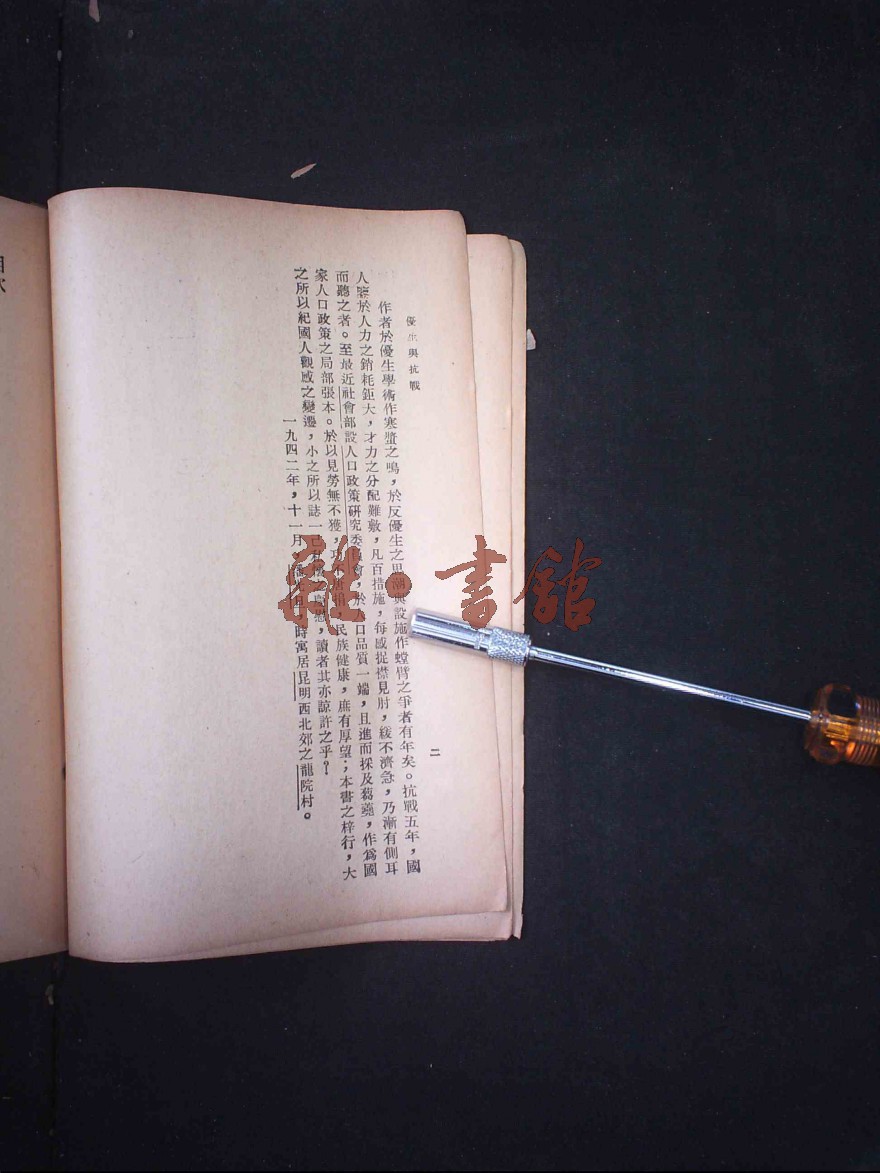 優生與抗戰
二
作者於優生學術作寒螿之鳴，於反優生之思潮與設施作螳臂之爭者有年矣。抗戰五年，國
人鑒於人力之銷耗鉅大，才力之分配難敷，凡百措施，每感捉襟見肘，緩不濟急，乃漸有側耳
而聽之者。至最近社會部設人口政策研究委員會，於人口品質一端，且進而採及蒭蕘，作爲國
家人口政策之局部張本。於以見勞無不獲，功不唐捐，民族健康，庶有厚望；本書之梓行，大
之所以紀國人觀感之變遷，小之所以誌一己，讀者其亦諒許之乎？
一九四二年，十一月，時寓居昆明西北郊之龍院村。
雜·書館